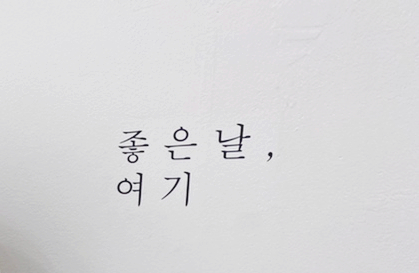 좋은날,
여기